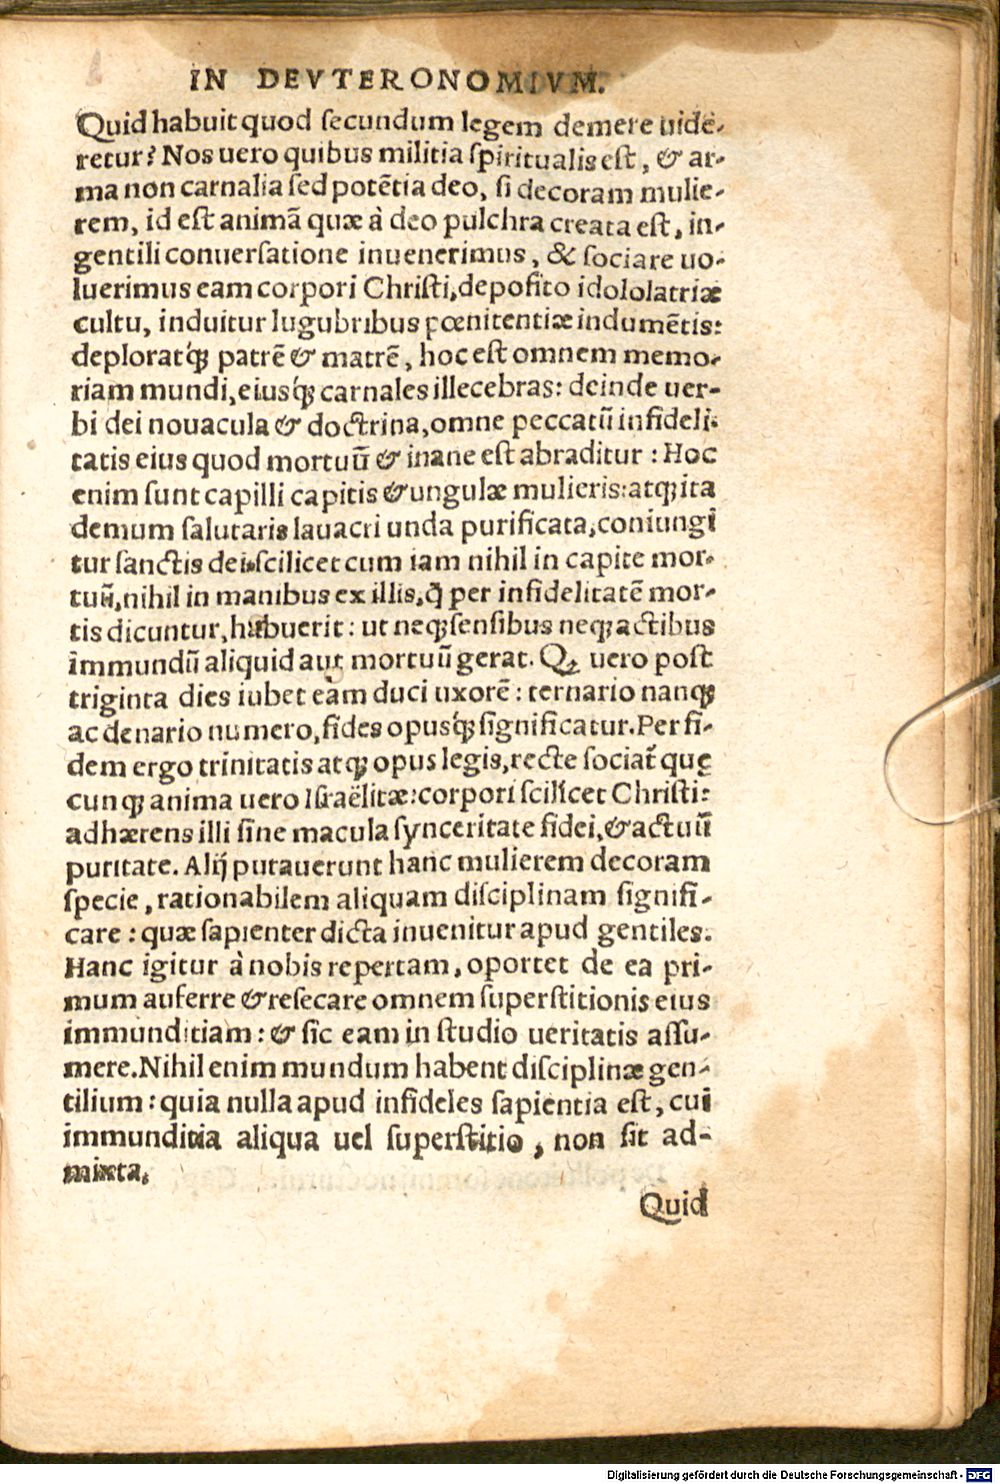 IN DEVTERONOMIVM.
Quid habuit quod ſecundum legem demere uide-
retur? Nos uero quibus militia ſpiritualis eſt, & ar-
ma non carnalia ſed potẽtia deo, ſi decoram mulie-
rem, id eſt animã quæ à deo pulchra creata eſt, in-
gentili conuerſatione inuenerimus, & ſociare uo-
luerimus eam corpori Chriſti, depoſito idololatriæ
cultu, induitur lugubribus pœnitentiæ indumẽtis:
deploratq́ꝫ patrẽ & matrẽ, hoc eſt omnem memo-
riam mundi, eiusq́ꝫ carnales illecebras: deinde uer-
bi dei nouacula & doctrina, omne peccatũ infideli-
tatis eius quod mortuũ & inane eſt abraditur: Hoc
enim ſunt capilli capitis & ungulæ mulieris: atqꝫ ita
demum ſalutaris lauacri unda purificata, coniungi
tur ſanctis dei. ſcilicet cum iam nihil in capite mor-
tuũ, nihil in manibus ex illis, q̃ per infidelitatẽ mor-
tis dicuntur, habuerit: ut neqꝫ ſenſibus neqꝫ actibus
immundũ aliquid aut mortuũ gerat. Qꝫ uero poſt
triginta dies iubet eam duci uxorẽ: ternario nanqꝫ
ac denario numero, fides opusq́ꝫ ſignificatur. Per fi-
dem ergo trinitatis atqꝫ opus legis, recte ſociat̃ quę
cunqꝫ anima uero Iſraëlitæ: corpori ſcilicet Chriſti:
adhærens illi ſine macula ſynceritate fidei, & actuũ
puritate. Alij putauerunt hanc mulierem decoram
ſpecie, rationabilem aliquam diſciplinam ſignifi-
care: quæ ſapienter dicta inuenitur apud gentiles.
Hanc igitur à nobis repertam, oportet de ea pri-
mum auferre & reſecare omnem ſuperſtitionis eius
immunditiam: & ſic eam in ſtudio ueritatis aſſu-
mere. Nihil enim mundum habent diſciplinæ gen-
tilium: quia nulla apud infideles ſapientia eſt, cui
immunditia aliqua uel ſuperſtitio, non ſit ad-
mixta,
Quid
Digitalisierung gefördert durch die Deutsche Forschungsgemeinschaft - DFG